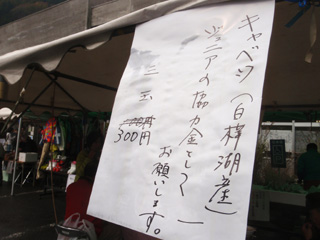 キャベツ(白樺湖産)
ジュニアの協力金として
お願いします。
三玉
300円